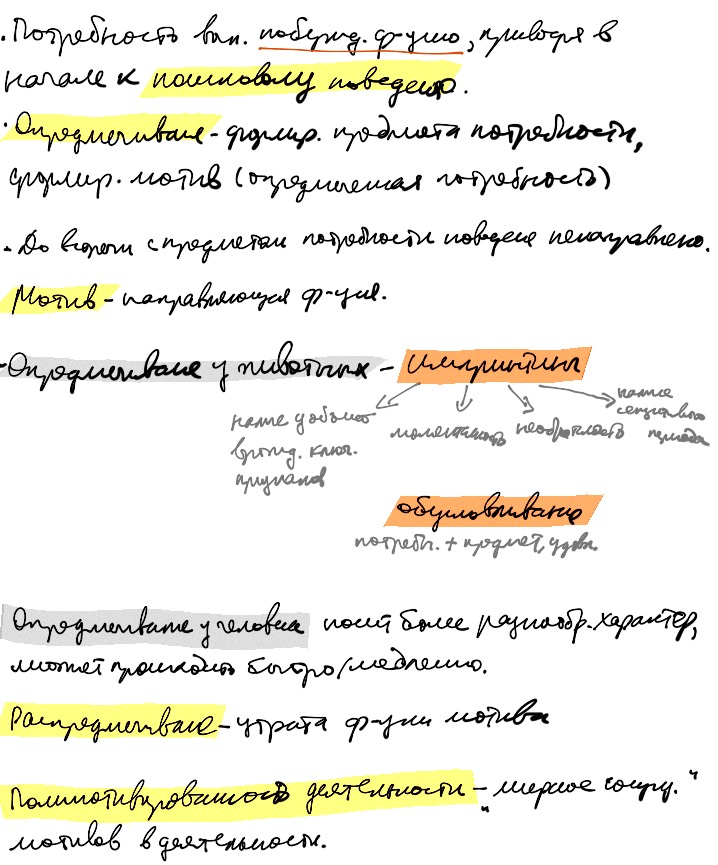 · Потребность вып. побужд. ф-цию, приводя в
начале к поисковому поведению.
· Опредмечивание - формир. предмета потребности,
формир. мотив (опредмеченная потребность)
· До встречи с предметом потребности поведение ненаправлено.
Мотив - направляющая ф-ция.
- Опредмечивание у животных - импринтинг
наличие у объекта
врожд. ключ.
признаков
моментальность
необратимость
наличие
сензитивного
периода
обусловливание
потребн. + предмет, удовл.
Опредмечивание у человека носит более разнообр. характер,
может происходить быстро/медленно.
Распредмечивание - утрата ф-ции мотива
Полимотивированность деятельности - "мирное сосущ."
мотивов в деятельности.